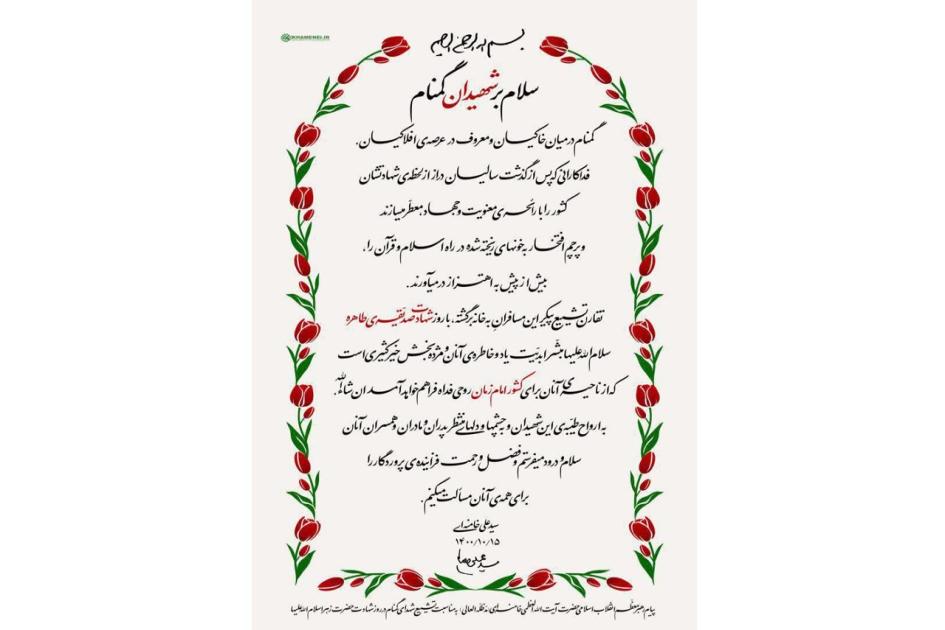 KHAMENEI.IR
بسم الله الرحمن الرحیم
سلام بر شهیدان گمنام
گمنام در میان خاکیان و معروف در عرصه‌ی افلاکیان.
فداکارانی که پس از گذشت سالیان دراز از لحظه‌ی شهادتشان
کشور را با رائحه‌ی معنویت و جهاد معطّر میسازند
و پرچم افتخار به خونهای ریخته شده در راه اسلام و قرآن را،
بیش از پیش به اهتزاز در میآورند.
تقارن تشییع پیکر این مسافران به خانه برگشته، با روز شهادت صدیقه‌ی طاهره
سلام الله علیها مبشّر ابدیّت یاد و خاطره‌ی آنان و مژده‌بخش خیر کثیری است
که از ناحیه‌ی آنان برای کشور امام زمان روحی فداه فراهم خواهد آمد ان شاءالله.
به ارواح طیّبه‌ی این شهیدان و به چشمها و دلهای منتظر پدران و مادران و همسران آنان
سلام و درود میفرستم و فضل و رحمت فزاینده‌ی پروردگار را
برای همه‌ی آنان مسألت میکنم.
سیدعلی خامنه‌ای
۱۴۰۰/۱۰/۱۵
پیام رهبر معظّم انقلاب اسلامی حضرت آیت الله العظمی خامنه‌ای مدظله العالی، به مناسبت تشییع شهدای گمنام در روز شهادت حضرت زهرا سلام الله علیها